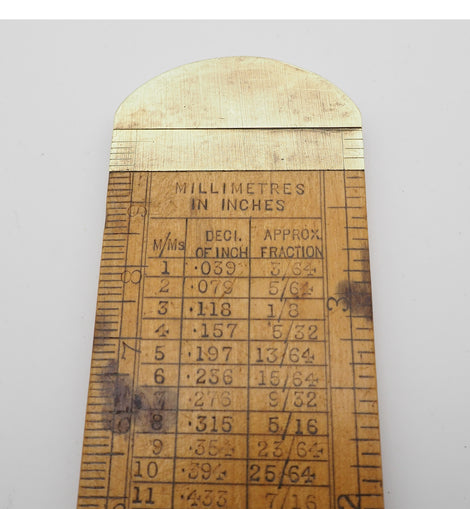 MILLIMETRES
IN INCHES
M/Ms DECI. OF INCH APPROX. FRACTION
1 .039 3/64
2 .079 5/64
3 .118 1/8
4 .157 5/32
5 .197 13/64
6 .236 15/64
7 .276 9/32
8 .315 5/16
9 .354 23/64
10 .394 25/64
11 .433 7/16
8
7
3
2